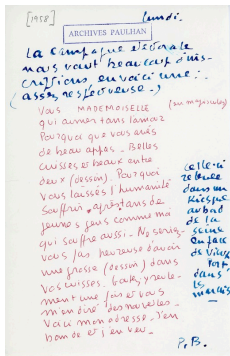 [1958]
lundi.
ARCHIVES PAULHAN
La campagne électorale
nous vaut beaucoup d'ins-
criptions en voici une :
(assez respectueuse)
Vous MADEMOISELLE (en majuscules)
qui aimer tans l'amaz
Pourquoi que vous avés
de beau appas. Belles
cuisses et beaux entre
deux (dessin). Pourquoi
vous laissés l'humanité
souffrir, après tans de
jeunes gens comme moi
qui souffre aussi. Ne seriez
vous pas heureuse d'avoir
une grosse (dessin) dans
vos cuisses.
ment une fois et vous
m'en diré des nouvelles.
Voici mon adresse. J'en
bande et j'en veu
celle-ci
relevée
dans un
Kiosque
au bord
de la
Seine
en face
de Vieux
Port,
dans
les
marais
P. B.